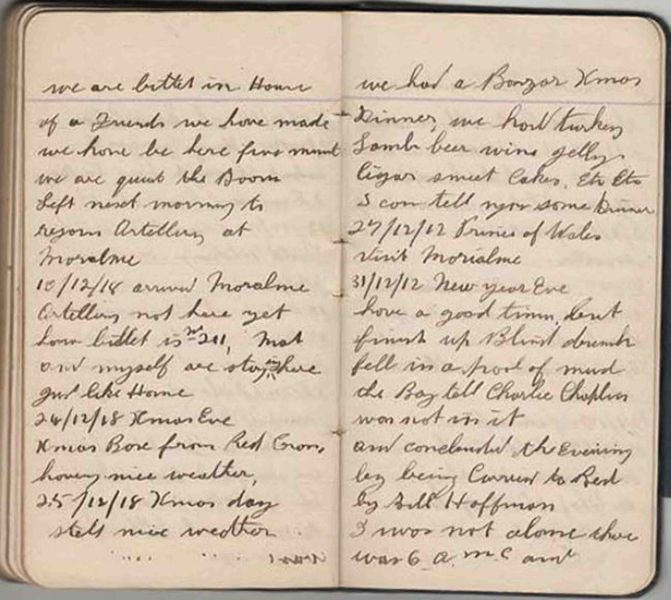 we are billet in House
of a Friends we have made
we have be here five minut
we are quiut the Boom
Left next morning to
rejoin Artellery at
Moralme
10/12/18 arrived Moralme
Artellery not here yet
how billet is no 211, Mat
and myself are stay here
just like Home
24/12/18 Xmas Eve
Xmas Boxe from Red Cross,
having nice weather,
25/12/18 Xmas day
still nice weather
we had a Bonzar Xmas
Dinner, we had turkey
Lamb beer wine jelly
Cigar sweet Cakes, Etc Etc
I can tell you some Dinner
27/12/12 Prince of Wales
visit Morialme
31/12/12 New year Eve
have a good time, but
finish up Blind drunk
fell in a pool of mud
the Boy tell Charlie Chaplin
was not in it
and concluded the Evening
by being Carried to Bed
by Bill Hoffman
I was not alone there
was 6 a.m.c and